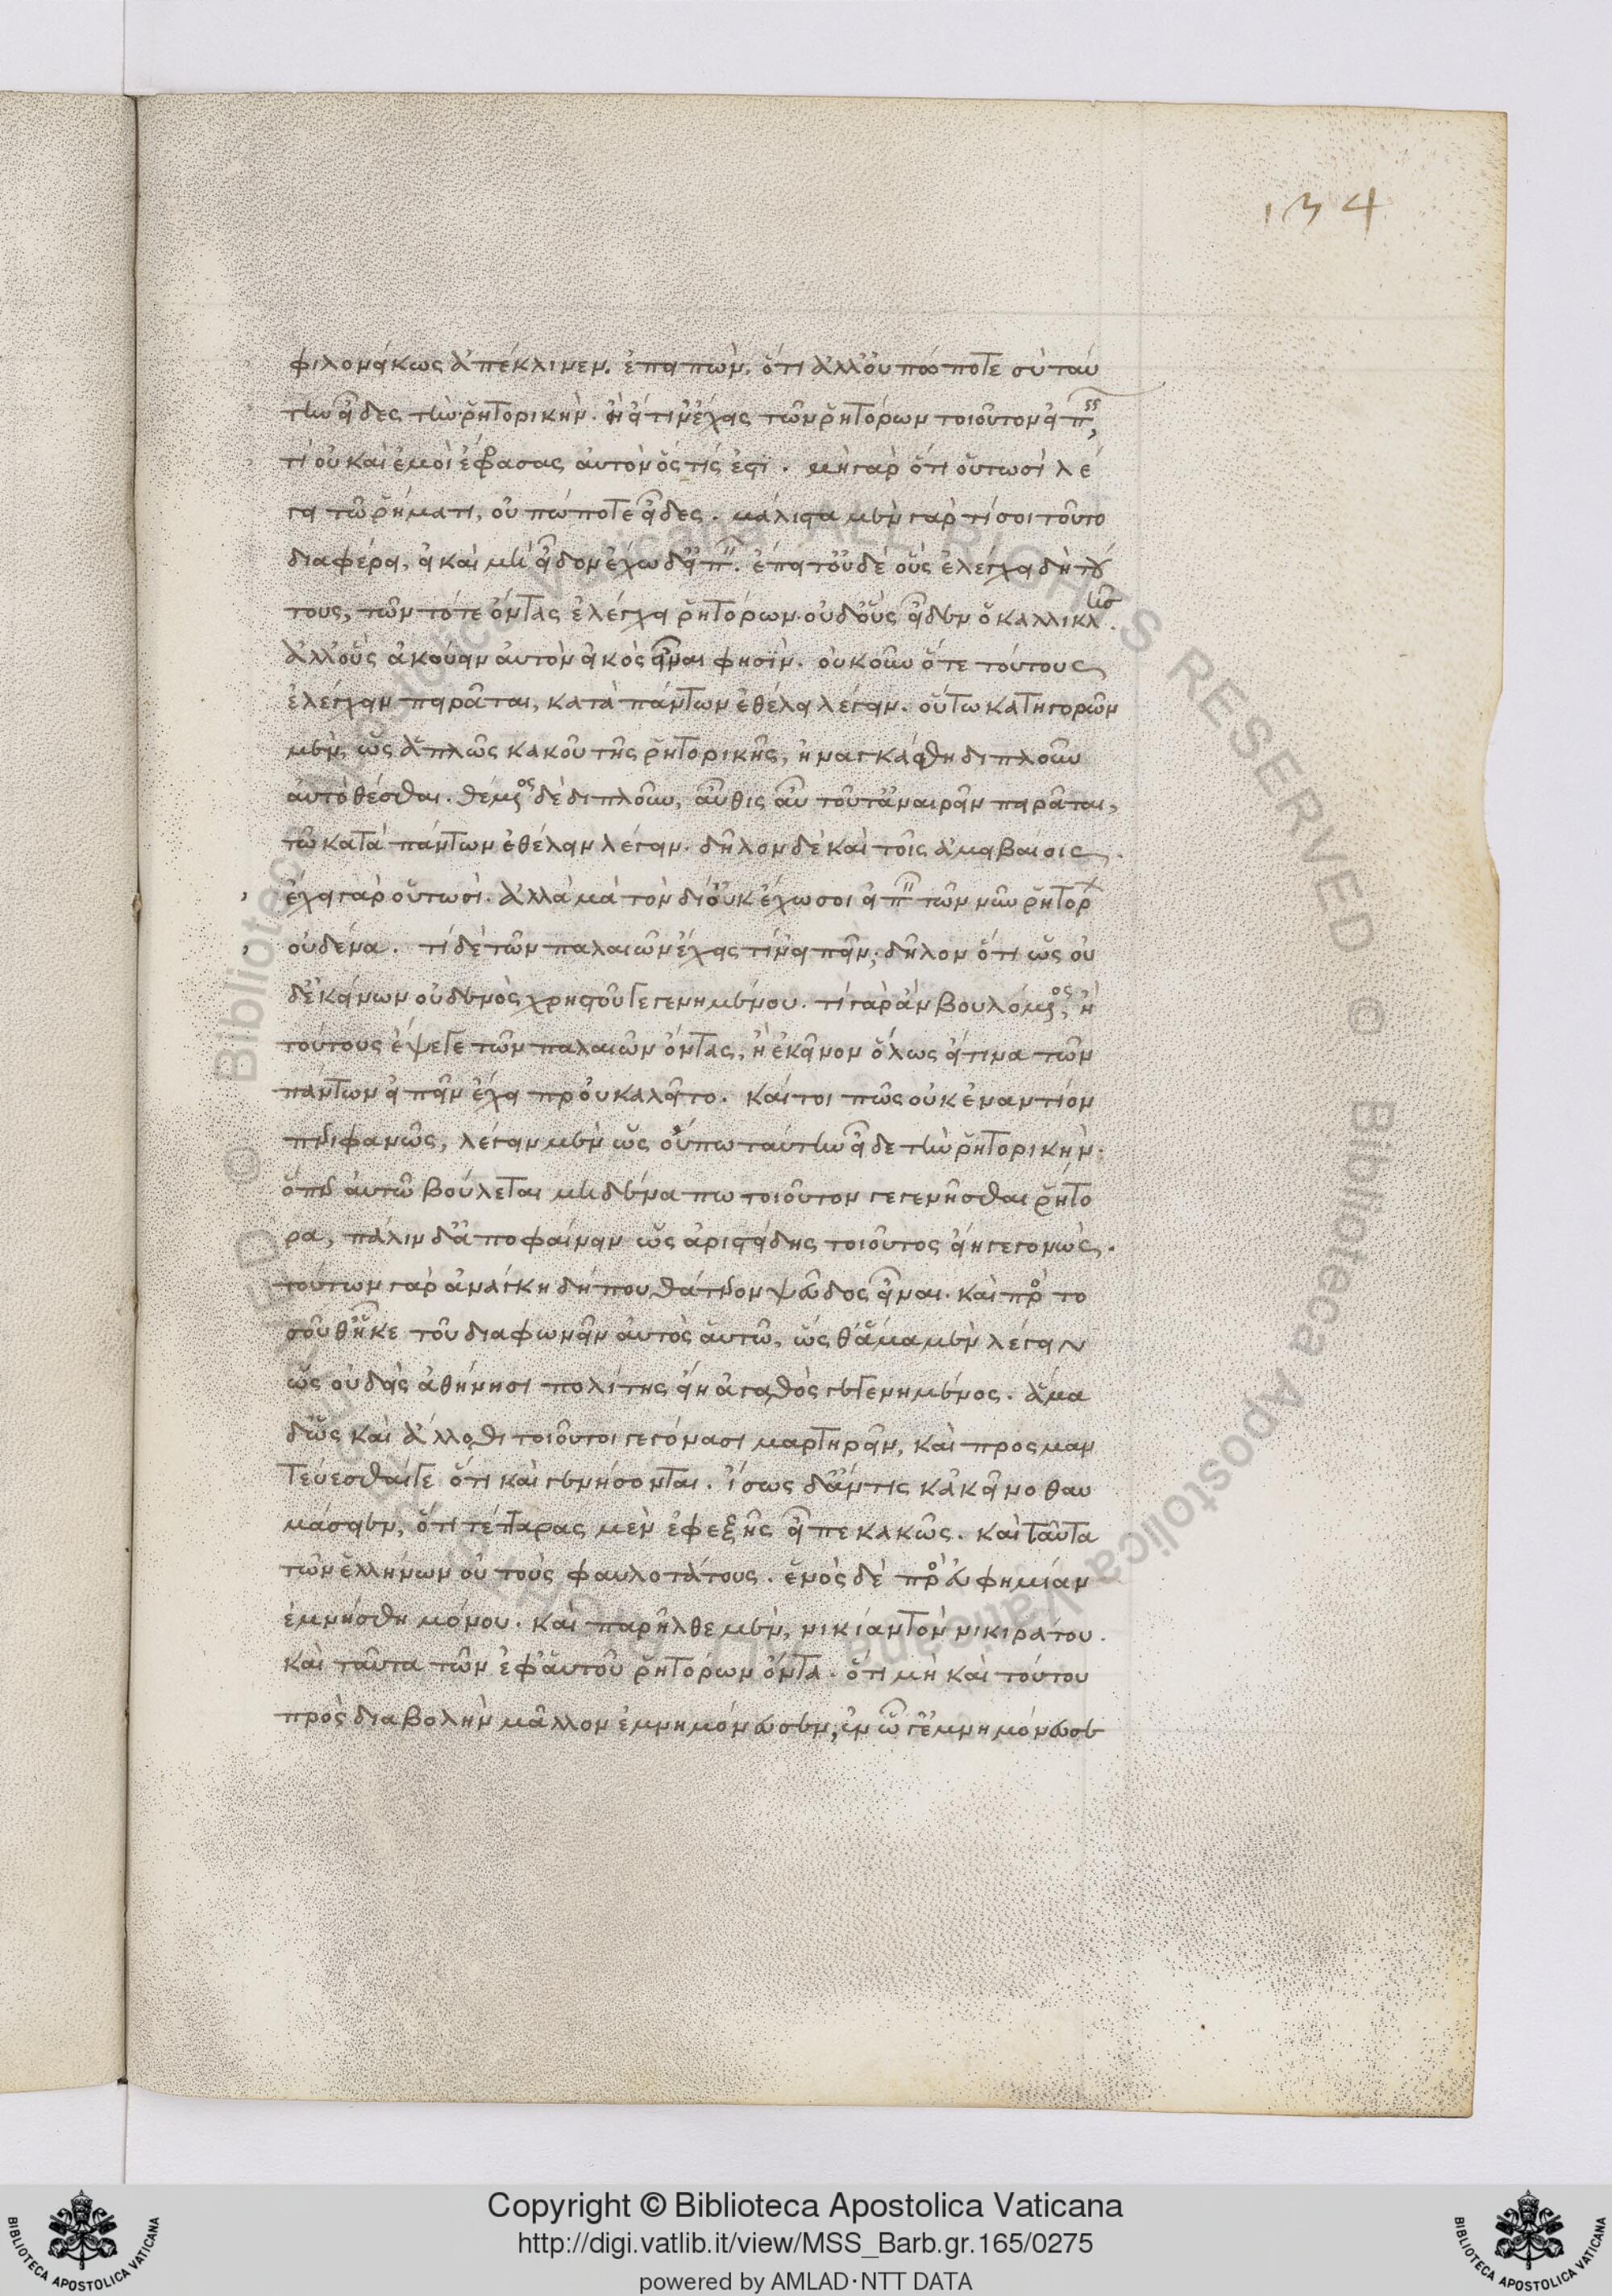 134
φιλονείκως ἀπέκλινεν. ἐπειπὼν. ὅτι ἀλλ' οὐπώποτε σὺ ταύ
την εἶδες τὴν ῥητορικήν. ἢ εἴ τιν' ἔχεις τῶν ῥητόρων τοιοῦτον εἰπεῖν,
τί οὐ καὶ ἐμοὶ ἔφρασας αὐτὸν ὅς τίς ἐστι. μὴ γὰρ ὅτι οὑτωσὶ λέ
γει τῷ ῥήματι, οὐ πώποτε εἶδες. μάλιστα μὲν γὰρ τί σοι τοῦτο
διαφέρει, εἰ καὶ μὴ εἶδον ἔχω δ' εἰπεῖν. ἔπειτ' οὐδὲ οὓς ἐλέγχει δὴ τού
τους, τῶν τότε ὄντας ἐλέγχει ῥητόρων. οὐδ' οὓς εἶδεν ὁ καλλικλῆς.
ἀλλ' οὓς ἀκούειν αὐτὸν εἰκὸς εἶναι φησίν. οὐκοῦν ὅτε τούτους
ἐλέγχειν πειρᾶται, κατὰ πάντων ἐθέλει λέγειν. οὕτω κατηγορῶν
μὲν, ὡς ἁπλῶς κακοῦ τῆς ῥητορικῆς, ἠναγκάσθη διπλοῦν
αὐτὸ θέσθαι. θέμενος δὲ διπλοῦν, αὖθις αὖ τοῦτ' ἀναιρεῖν πειρᾶται,
τῷ κατὰ πάντων ἐθέλειν λέγειν. δῆλον δὲ καὶ τοῖς ἀμειβαίοις.
ἔχει γὰρ οὑτωσὶ. ἀλλὰ μὰ τὸν δί' οὐκ ἔχω σοι εἰπεῖν τῶν νῦν ῥητόρων
οὐδένα. τί δὲ τῶν παλαιῶν ἔχεις τίν' εἰπεῖν; δῆλον ὅτι ὡς οὐ
δ' ἐκείνων οὐδενὸς χρηστοῦ γεγενημένου. τί γὰρ ἂν βουλόμενος, ἢ
τούτους ἔψεγε τῶν παλαιῶν ὄντας, ἢ ἐκεῖνον ὅλως εἴ τινα τῶν
πάντων εἰπεῖν ἔχει προὐκαλεῖτο. καίτοι πῶς οὐκ ἐναντίον
περιφανῶς, λέγειν μὲν ὡς οὔπω ταύτην εἶδε τὴν ῥητορικήν.
ὅπερ αὐτῷ βούλεται μηδένα πω τοιοῦτον γεγενῆσθαι ῥήτο
ρα, πάλιν δ' ἀποφαίνειν ὡς ἀριστείδης τοιοῦτος εἴη γεγονώς.
τούτων γὰρ ἀνάγκη δήπου θάτερον ψεῦδος εἶναι. καὶ προς το
σοῦθ' ἧκε τοῦ διαφωνεῖν αὐτὸς αὑτῷ, ὥσθ' ἅμα μὲν λέγειν
ὡς οὐδεὶς ἀθήνησι πολίτης εἴη ἀγαθὸς γεγενημένος. ἅμα
δ' ὡς καὶ ἄλλοθι τοιοῦτοι γεγόνασι μαρτηρεῖν, καὶ προσμαν
τεύεσθαί γε ὅτι καὶ γενήσονται. ἴσως δ' ἄν τις κἀκεῖνο θαυ
μάσειεν, ὅτι τέτταρας μὲν ἐφεξῆς εἶπε κακῶς. καὶ ταῦτα
τῶν ἑλλήνων οὐ τοὺς φαυλοτάτους. ἑνὸς δὲ πρὸς εὐφημίαν
ἐμνήσθη μόνου. καὶ παρῆλθε μὲν, νικίαν τὸν νικιράτου.
καὶ ταῦτα τῶν ἐφ' αὑτοῦ ῥητόρων ὄντα. ὅτι μὴ καὶ τούτου
πρὸς διαβολὴν μᾶλλον ἐμνημόνευσεν, ἐν ᾧ γ' ἐμνημόνευσε
Copyright © Biblioteca Apostolica Vaticana
http://digi.vatlib.it/view/MSS_Barb.gr.165/0275
powered by AMLAD·NTT DATA